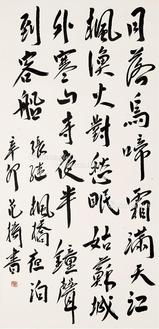 月落烏啼霜滿天江
楓漁火對愁眠姑蘇城
外寒山寺夜半鐘聲
到客船
張繼楓橋夜泊
辛卯范橋書